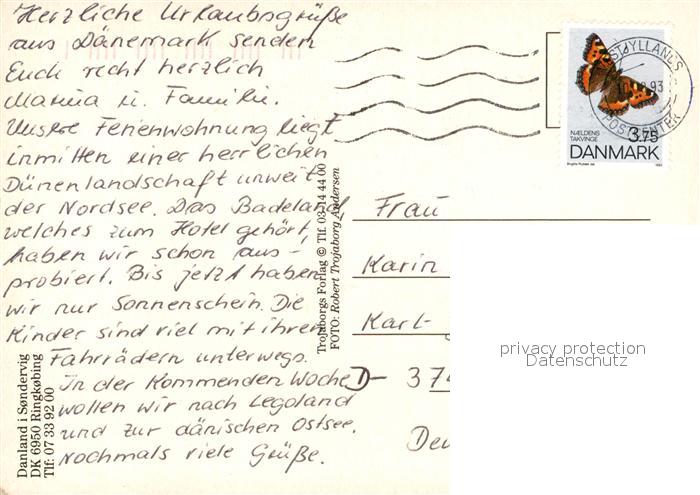 Herzliche Urlaubsgrüße
aus Dänemark senden
Euch recht herzlich
Marina u. Familie.
Unsere Ferienwohnung liegt
inmitten einer herrlichen
Dünenlandschaft unweit
der Nordsee. Das Badeland
welches zum Hotel gehört,
haben wir schon aus-
probiert. Bis jetzt haben
wir nur Sonnenschein. Die
Kinder sind viel mit ihren
Fahrrädern unterwegs.
In der kommenden Woche
wollen wir nach Legoland
und zur dänischen Ostsee.
Nochmals viele Grüße.
Danland i Søndervig
DK 6950 Ringkøbing
Tlf: 07 33 92 00
Trojaborgs Forlag © Tlf. 03 14 44 00
FOTO: Robert Trojaborg Andersen
NÆLDENS
TAKVINGE
3.75
DANMARK
POSTCENTER
93
Frau
Karin
Karl-
D- 374
privacy protection
Datenschutz